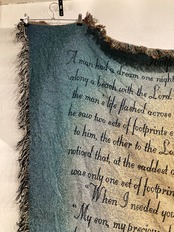 A man had a dream one night
along a beach with the Lord.
the man's life flashed across
he saw two sets of footprints
to him, the other to the Lord
noticed that, at the saddest
was only one set of footprin
"When I needed you
"My son, my precious